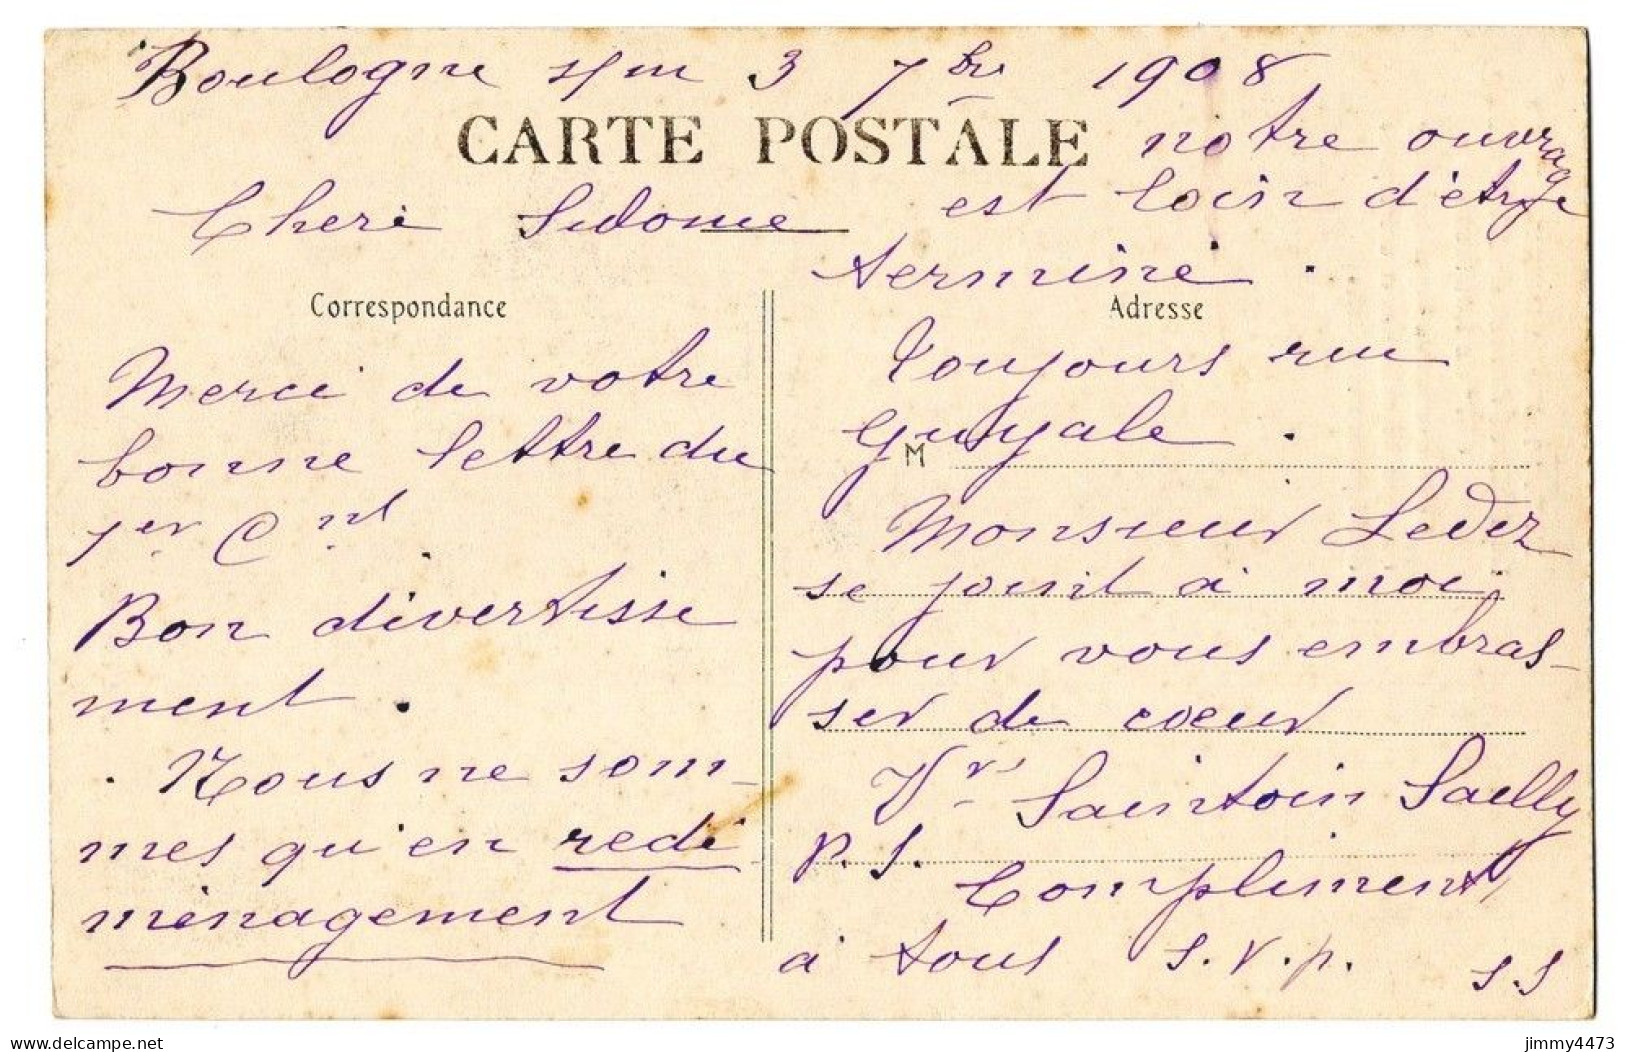 Boulogne s/m 3 7bre 1908
CARTE POSTALE
Cheri Sidome
Correspondance
Merci de votre
bonne lettre du
1er Cnt
Bon divertisse
ment.
. Nous ne som-
mes qu'en redé
ménagement
notre ouvrage
est loin d'être
terminé.
Adresse
Toujours rue
Guyale.
M
Monsieur Ledez
se joint à moi
pour vous embras-
ser de coeur
Vve Saintoin Saelly
P.S.
Compliment
à tous S.V.p. S.S
delcampe.net
jimmy4473